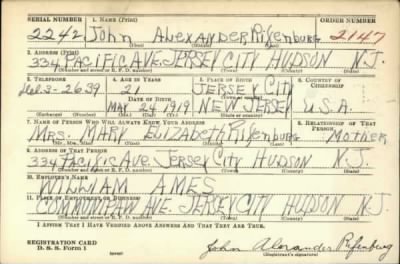 SERIAL NUMBER 1. NAME (Print) ORDER NUMBER
2242 John Alexander Rifenburg 2147
(First) (Middle) (Last)
2. ADDRESS (Print)
334 PACIFIC AVE. JERSEY CITY HUDSON N.J.
(Number and street or R. F. D. number) (Town) (County) (State)
3. TELEPHONE 4. AGE IN YEARS 5. PLACE OF BIRTH 6. COUNTRY OF CITIZENSHIP
Del 3-2639 21 JERSEY CITY
DATE OF BIRTH (Town or county)
MAY 24 1919 NEW JERSEY U.S.A.
(Exchange) (Number) (Mo.) (Day) (Yr.) (State or country)
7. NAME OF PERSON WHO WILL ALWAYS KNOW YOUR ADDRESS 8. RELATIONSHIP OF THAT PERSON
MRS. MARY ELIZABETH Rifenburg MOTHER
(Mr., Mrs., Miss) (First) (Middle) (Last)
9. ADDRESS OF THAT PERSON
334 PACIFIC AVE. JERSEY CITY HUDSON N.J.
(Number and street or R. F. D. number) (Town) (County) (State)
10. EMPLOYER'S NAME
WILLIAM AMES
11. PLACE OF EMPLOYMENT OR BUSINESS
COMMUNIPAW AVE. JERSEY CITY HUDSON N.J.
(Number and street or R. F. D. number) (Town) (County) (State)
I AFFIRM THAT I HAVE VERIFIED ABOVE ANSWERS AND THAT THEY ARE TRUE.
REGISTRATION CARD
D. S. S. Form 1 (over) John Alexander Rifenburg
(Registrant's signature)